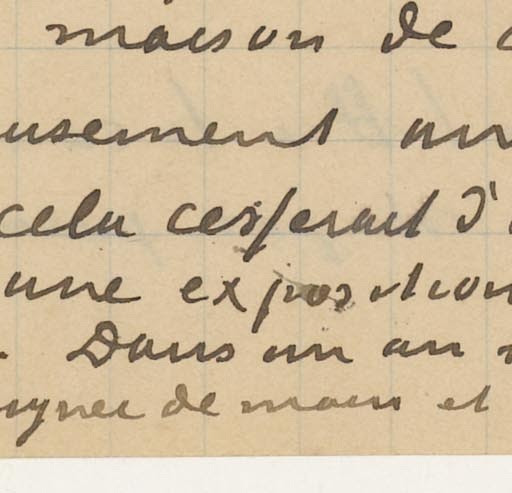 maison de
usement un
cela cesserait d'
une exposition
. Dans un an
ignée de main et